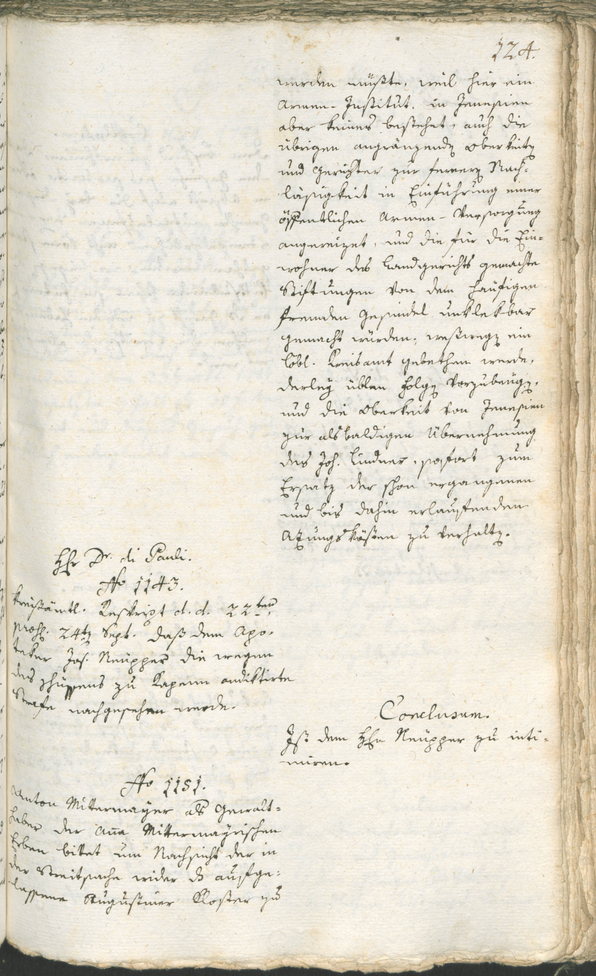 124.
werden müßte, weil hier ein
Armen-Institut, in Jenesien
aber keines bestehet, auch die
übrigen angränzendn Oberkeitn
und Gerichter zur fernern Nach-
läßigkeit in Einführung einer
öffentlichen Armen-Versorgung
angereizet, und die für die Ein-
wohner des Landgerichts gemachte
Stiftungen von dem häufigen
fremden Gesindel unklekbar
gemacht würden, weswegn ein
löbl. Kreisamt gebethen werde,
derley üblen Folgn vorzubeugn,
und die Oberkeit von Jenesien
zur alsbaldigen Übernehmung
des Joh. Lindner, sofort zum
Ersatz der schon ergangenen
und bis dahin erlaufenden
Azungskösten zu verhaltn.
Hhr Dr. di Pauli.
No 1143.
Kreisämtl. Reskript d. d. 22ten
praes. 24tn Sept. daß dem Apo-
teker Jos. Neupper die wegen
des Schüssens zu Kapenn andiktirte
Strafe nachgesehen werde.
Conclusum.
Ist dem Hhr Neupper zu inti-
miren.
No 1151.
Anton Mitermayer als Gewalt-
haber der Aña Mittermayrischen
Erben bittet um Nachsicht der in
der Streitsache wider das aufge-
lassene Augustiner Kloster zu